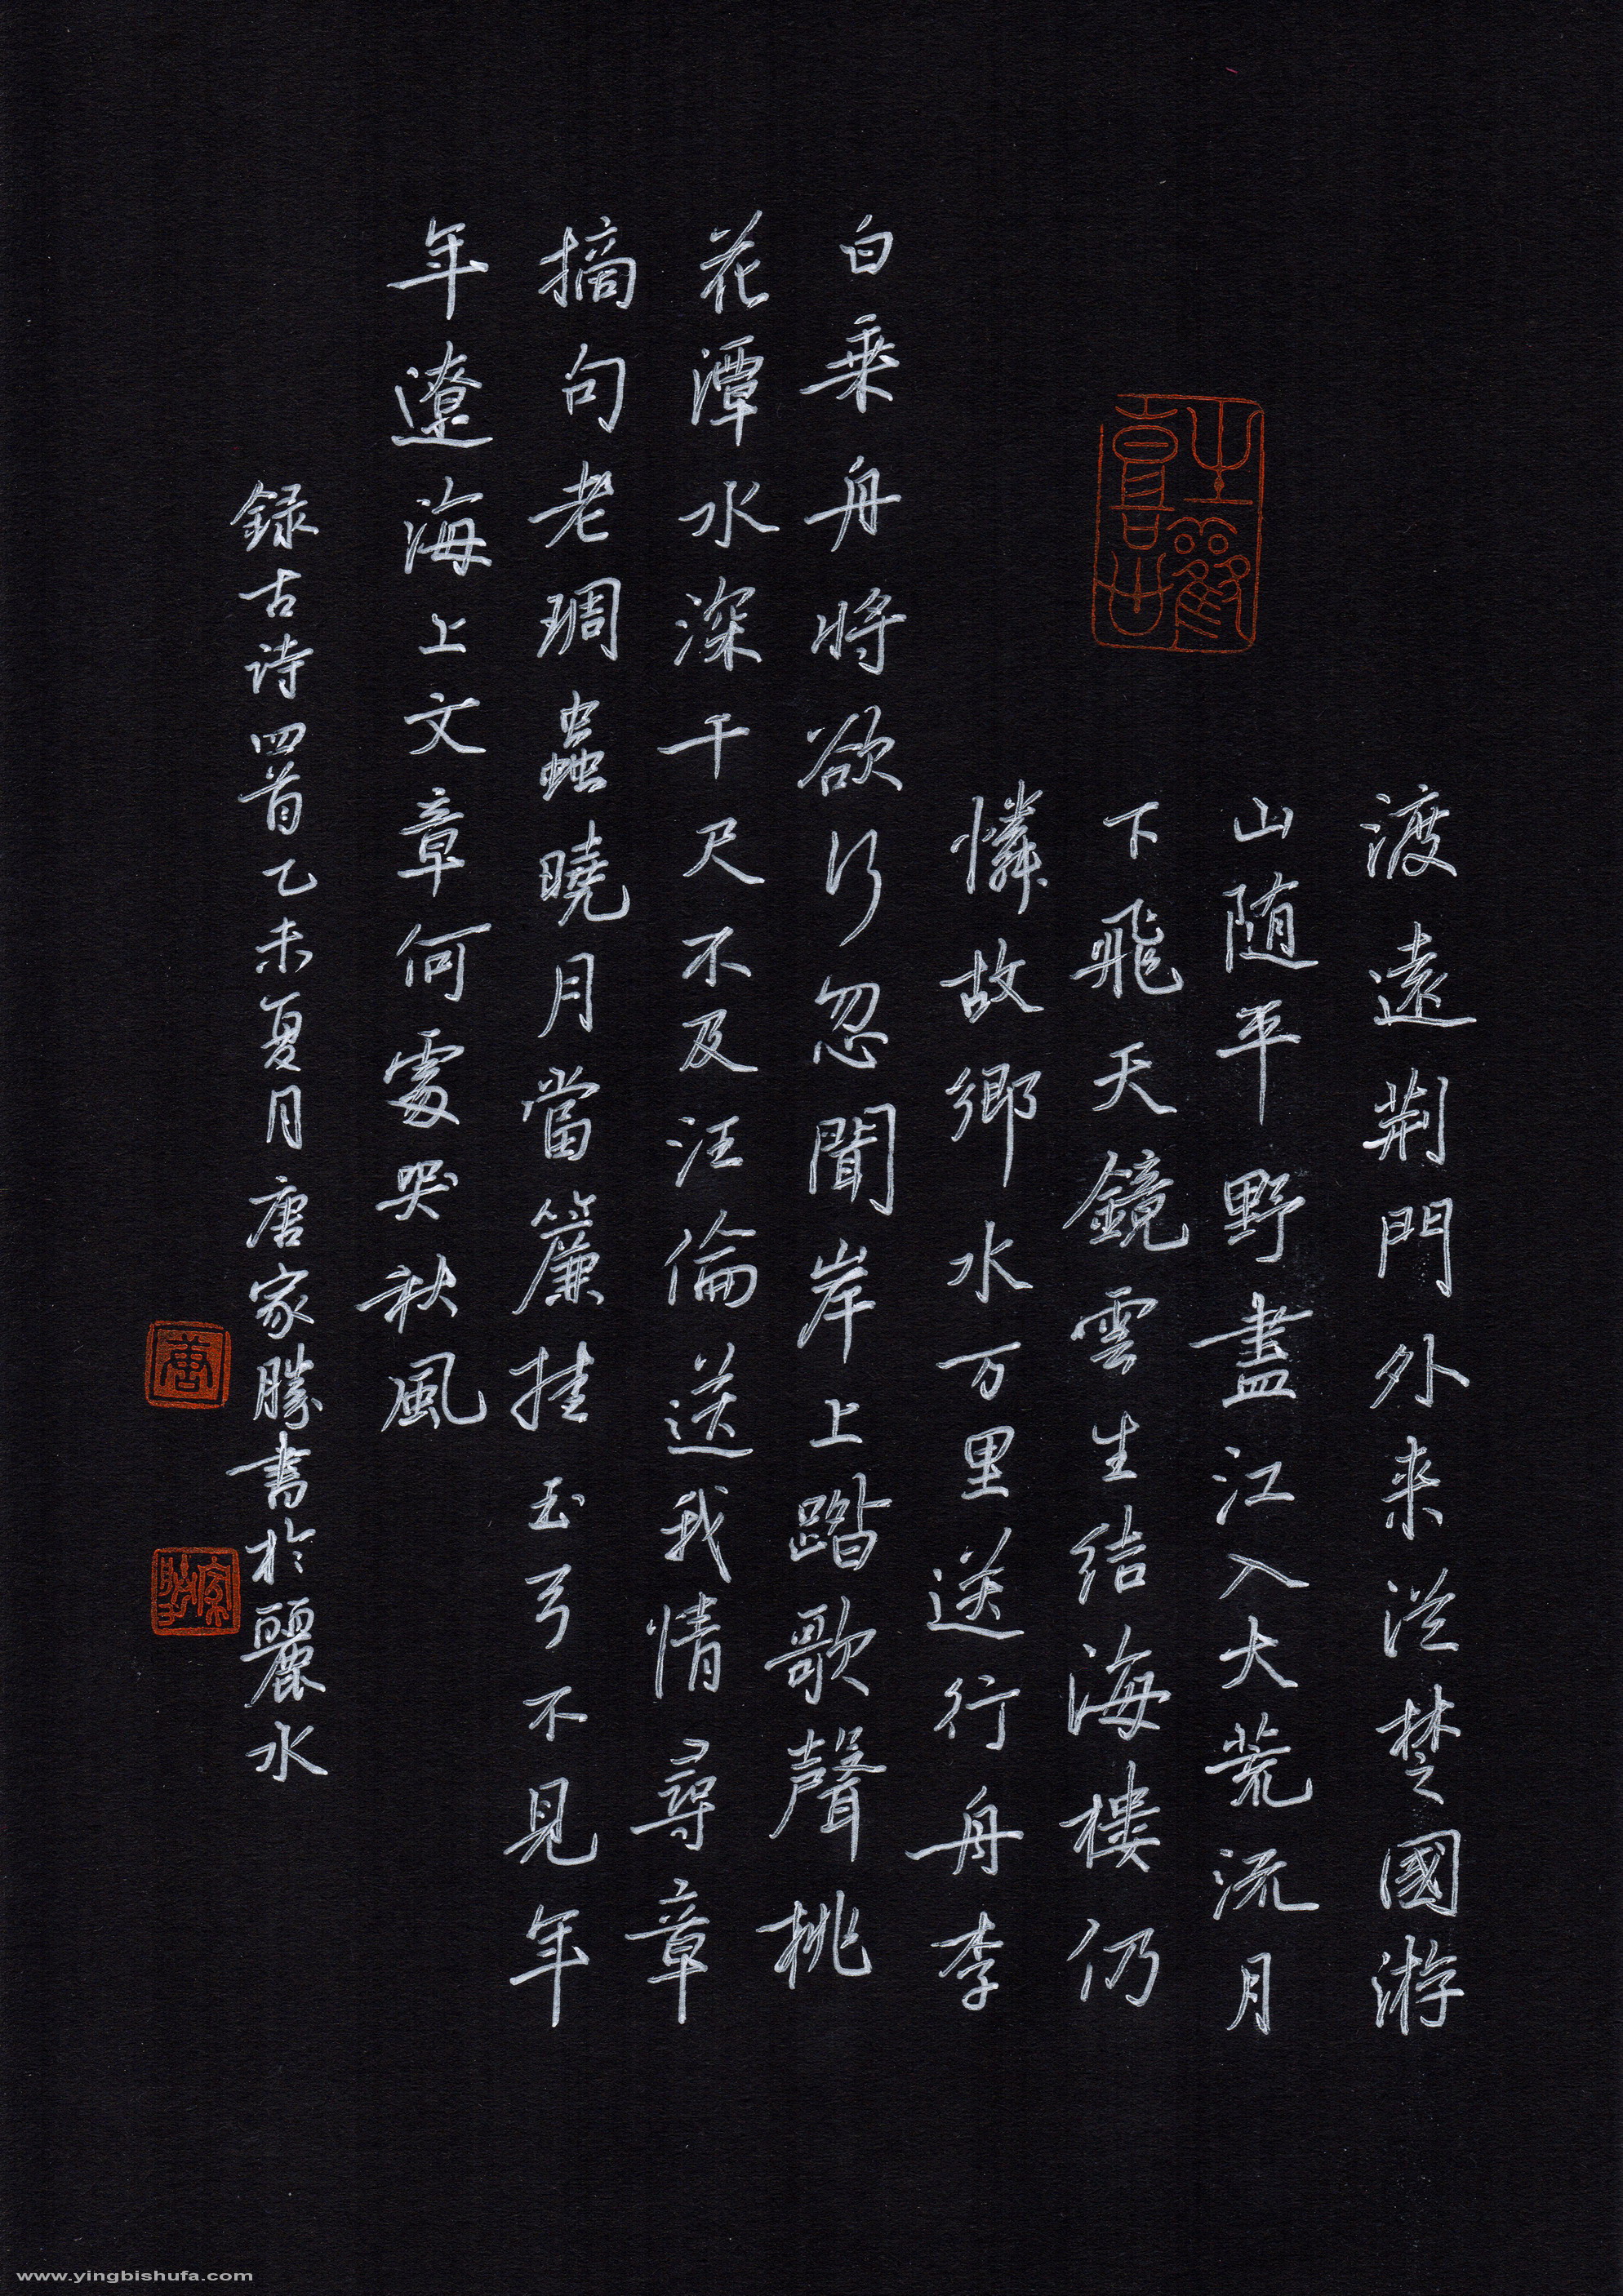 渡遠荆門外来從楚國游
山随平野盡江入大荒流月
下飛天鏡雲生結海樓仍
憐故鄉水万里送行舟李
白乘舟將欲行忽聞岸上踏歌聲桃
花潭水深千尺不及汪倫送我情尋章
摘句老琱蟲曉月當簾挂玉弓不見年
年遼海上文章何處哭秋風
録古詩四首乙未夏月唐家勝書於麗水
唐
家勝
www.yingbishufa.com